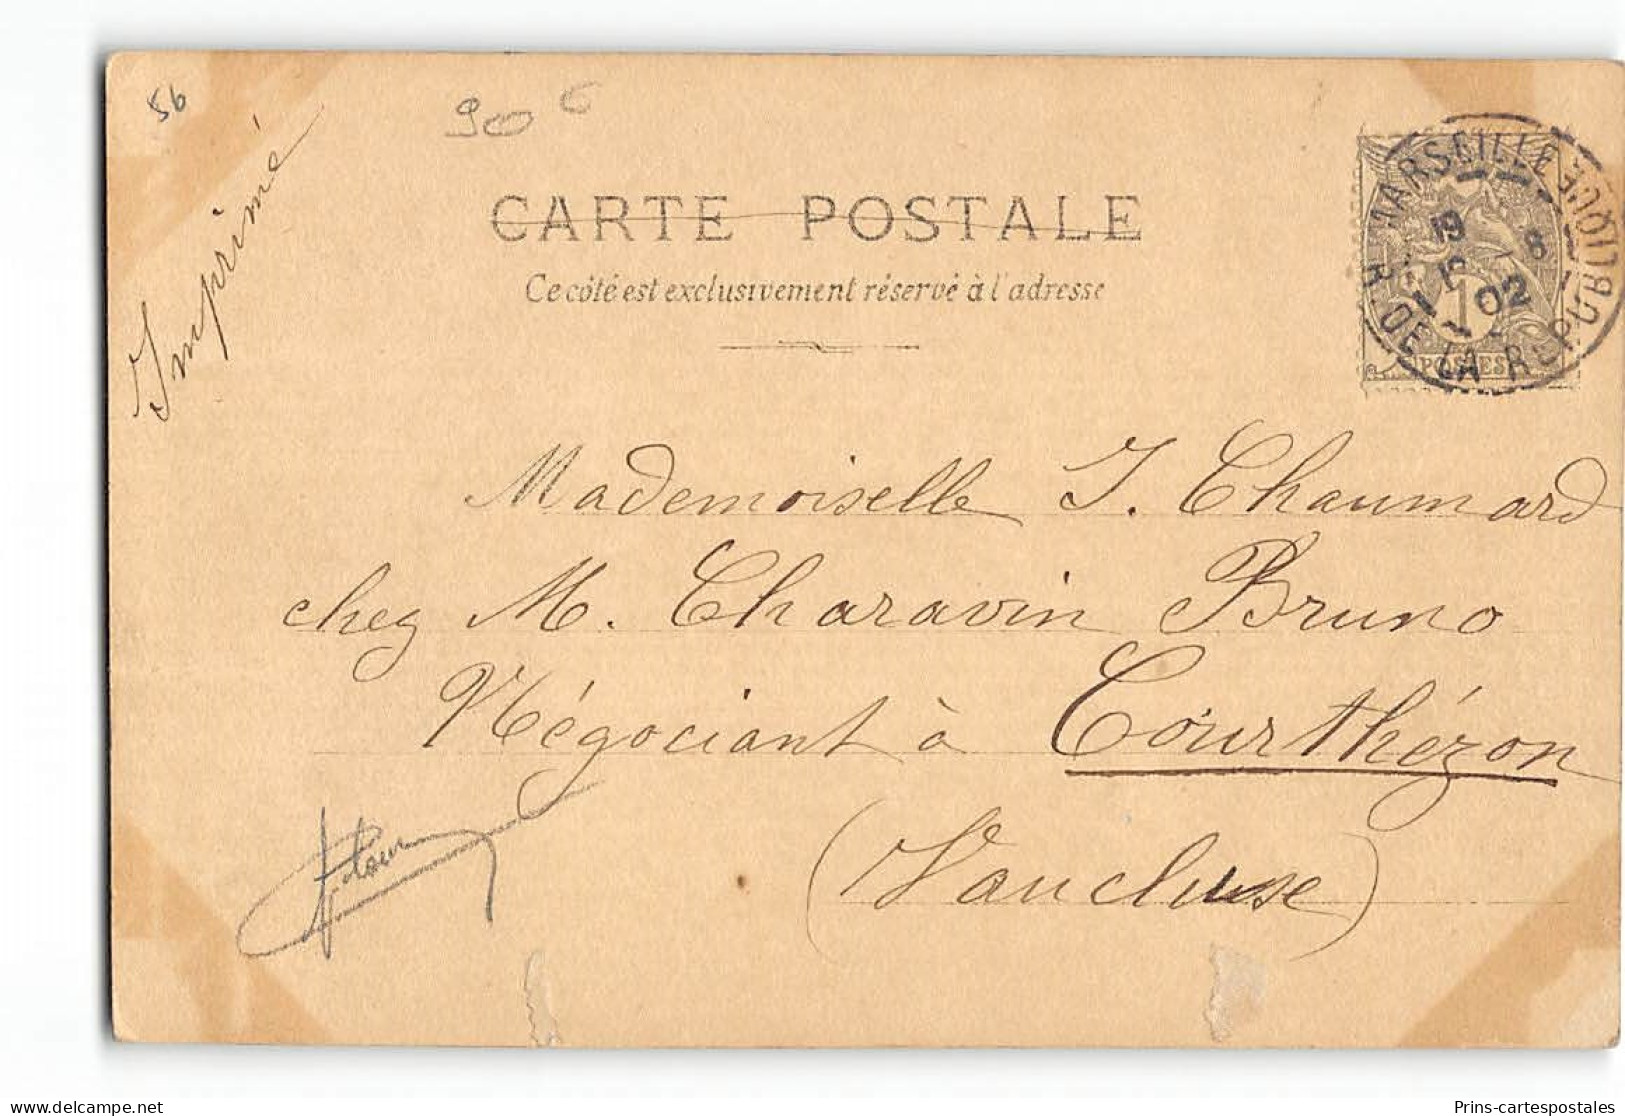 56
90 c
Imprimé
CARTE POSTALE
Ce côté est exclusivement réservé à l'adresse
MARSEILLE
R. DE LA REPUBLIQUE
19
8
02
1
POSTES
Mademoiselle J. Chaumard
chez M. Charavin Bruno
Négociant à Courthézon
(Vaucluse)
www.delcampe.net
Prins-cartespostales